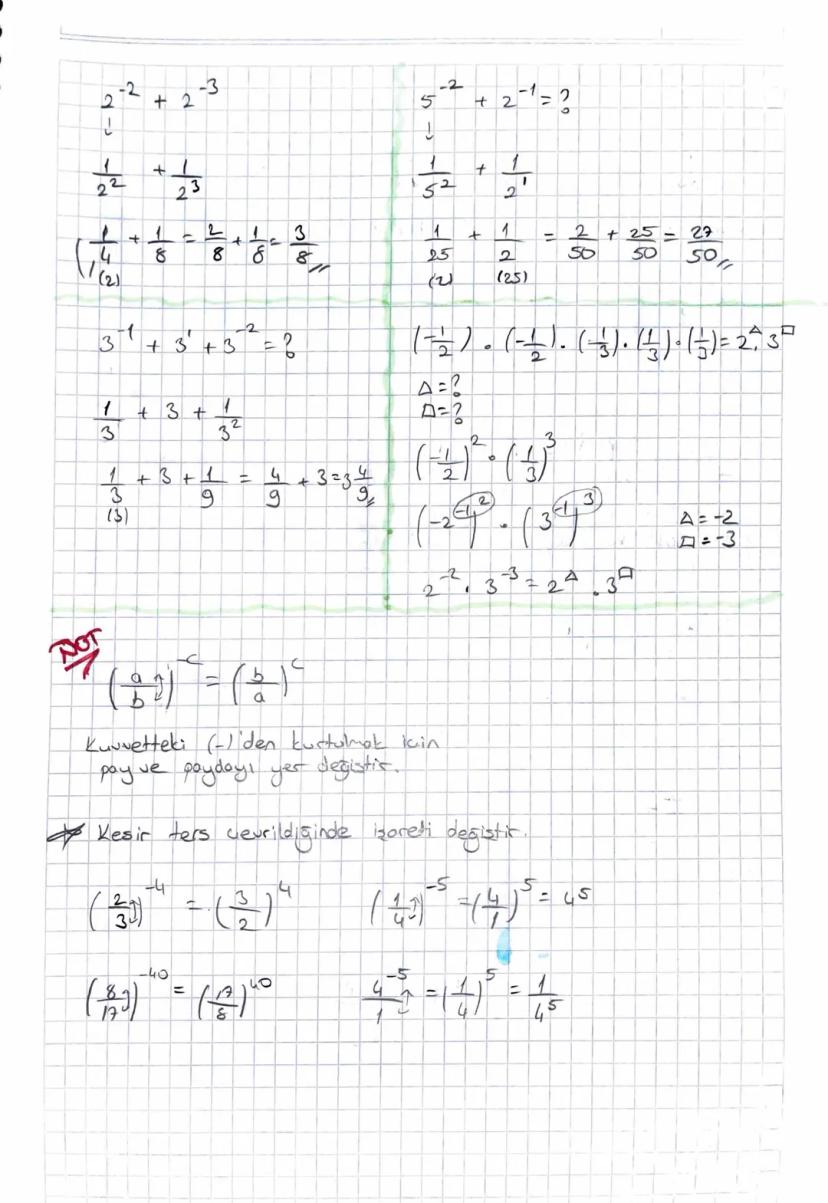 2⁻² + 2⁻³
↓
1/2² + 1/2³
1/4 + 1/8 = 2/8 + 1/8 = 3/8
(2)
5⁻² + 2⁻¹ = ?
↓
1/5² + 1/2¹
1/25 + 1/2 = 2/50 + 25/50 = 27/50
(2) (25)
3⁻¹ + 3¹ + 3⁻² = ?
1/3 + 3 + 1/3²
1/3 + 3 + 1/9 = 4/9 + 3 = 3 4/9
(3)
(-1/2) · (-1/2) · (1/3) · (1/3) · (1/3) = 2^△ · 3^□
△ = ?
□ = ?
(-1/2)² · (1/3)³
(-2⁻¹)² · (3⁻¹)³
△ = -2
□ = -3
2⁻² · 3⁻³ = 2^△ · 3^□
NOT
(a/b)^-c = (b/a)^c
Kuvvetteki (-)'den kurtulmak için
pay ve paydayı yer değiştir.
Kesir ters çevrildiğinde işareti değiştir.
(2/3)⁻⁴ = (3/2)⁴
(1/4)⁻⁵ = (4/1)⁵ = 4⁵
(8/17)⁻⁴⁰ = (17/8)⁴⁰
4⁻⁵/1 = (1/4)⁵ = 1/4⁵